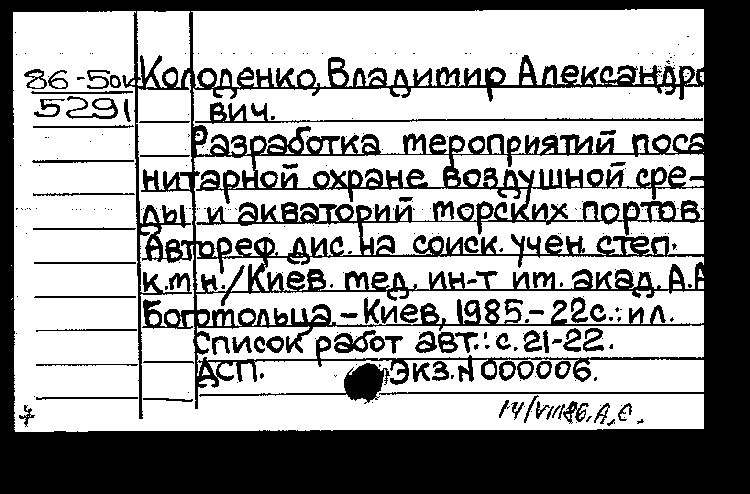 86-5ок Колоденко, Владимир Александро
5291 вич.
Разработка мероприятий по са
нитарной охране воздушной сре-
ды и акваторий морских портов
Автореф. дис. на соиск. учен. степ.
к.м.н./Киев. мед. ин-т им. акад. А.А
Богомольца.-Киев, 1985.-22с.:ил.
Список работ авт.: с.21-22.
ДСП. Экз.N000006.
14/VIII86. А.С.